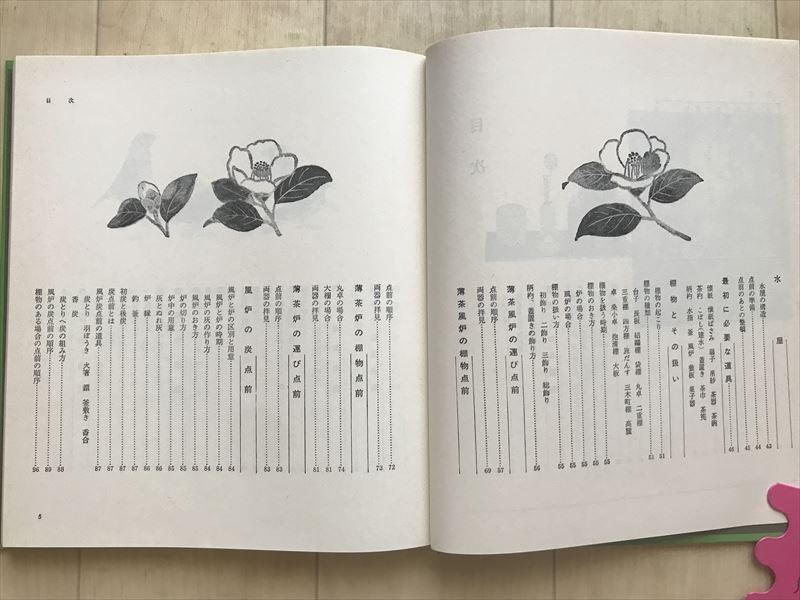 水屋
水屋の構造 43
点前の準備 44
点前のあとの整頓 45
最初に必要な道具 46
懐紙 懐紙ばさみ 扇子 帛紗 茶器 茶碗
茶杓 こぼし(建水) 蓋置き 茶巾 茶筅
柄杓 水指 釜 風炉 敷板 菓子器
棚物とその扱い
棚物の起こり 51
棚物の種類 51
台子 長板 紹鷗棚 袋棚 丸卓 二重棚
三重棚 四方棚 旅だんす 三木町棚 高麗
卓 桑小卓 抱清棚 大板
棚物を扱う時期 55
棚物のおき方 55
炉の場合 55
風炉の場合 55
棚物の扱い方 55
初飾り 二飾り 三飾り 総飾り
柄杓、蓋置きの飾り方 56
薄茶風炉の運び点前
点前の順序 57
両器の拝見 69
薄茶風炉の棚物点前
目次
点前の順序 72
両器の拝見 73
薄茶炉の棚物点前
丸卓の場合 74
大棚の場合 81
両器の拝見 81
薄茶炉の運び点前
点前の順序 83
両器の拝見 83
風炉の炭点前
風炉と炉の区別と用意 84
風炉と炉の時期 84
風炉の灰の作り方 84
風炉のおき方 84
炉の切り方 85
炉中の用意 85
灰とぬれ灰 86
炉縁 86
釣釜 87
初炭と後炭 87
炭点前とは 87
風炉炭点前の道具 87
炭とり 羽ぼうき 火箸 鐶 釜敷き 香合
香 炭
炭とりへ炭の組み方 88
風炉の炭点前の順序 89
棚物のある場合の点前の順序 96
5